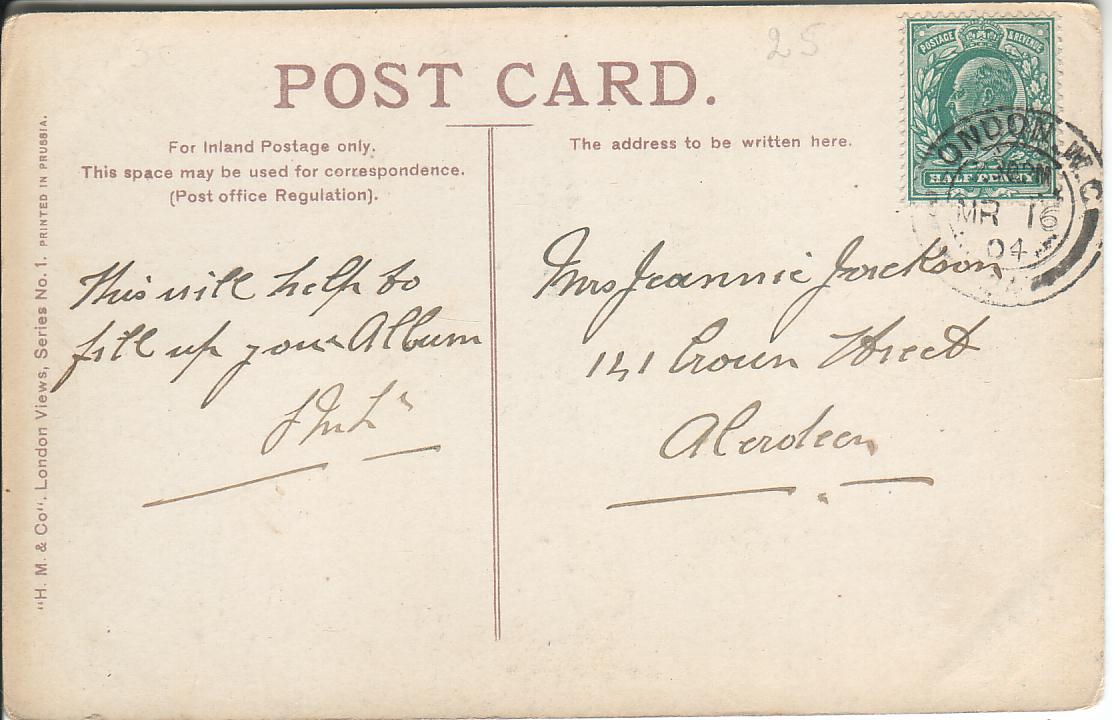 25
POST CARD.
For Inland Postage only.
This space may be used for correspondence.
(Post office Regulation).
The address to be written here.
POSTAGE & REVENUE
HALF PENNY
LONDON. W.C
MR 16
04
This will help to
fill up your Album
Mrs Jeannie Jackson
141 Crown Street
Aberdeen
"H. M. & Co". London Views, Series No. 1. PRINTED IN PRUSSIA.